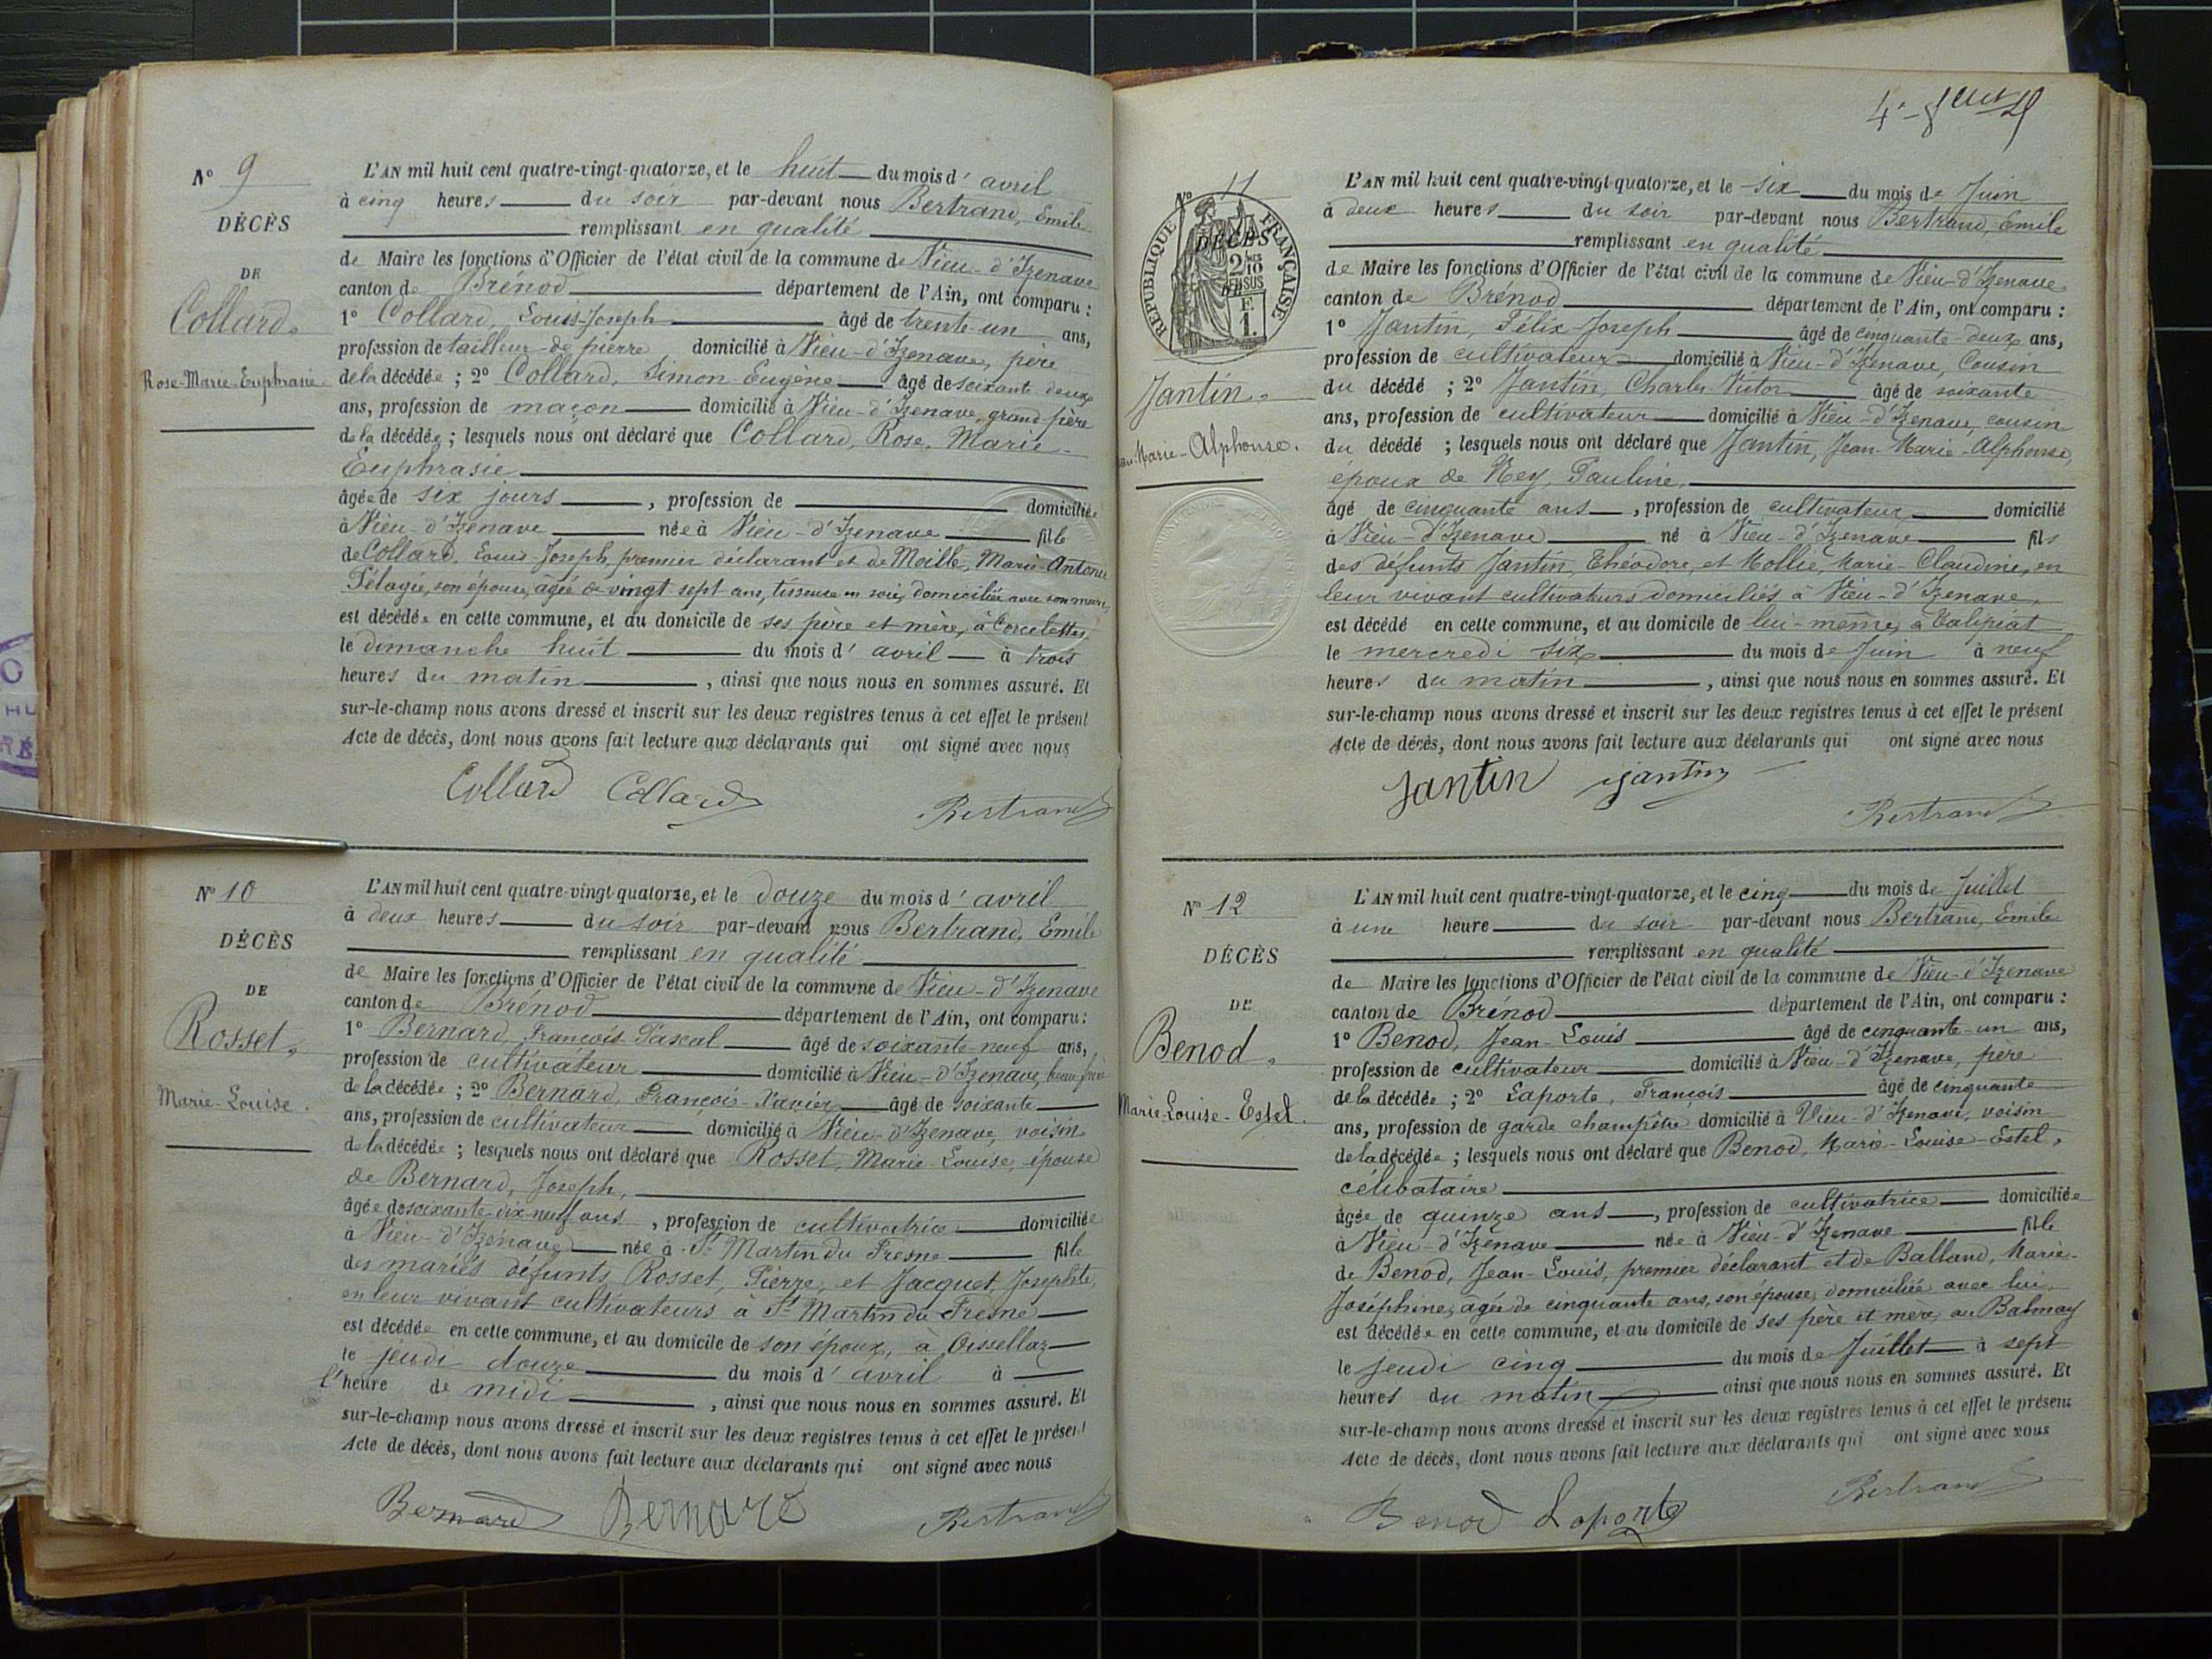 N° 9
DÉCÈS
DE
Collard.
Rose-Marie-Euphrasie
L'AN mil huit cent quatre-vingt-quatorze, et le huit du mois d'avril
à cinq heures du soir par-devant nous Bertrand, Emile
remplissant en qualité
de Maire les fonctions d'Officier de l'état civil de la commune de Vieu-d'Izenave
canton de Brénod département de l'Ain, ont comparu :
1° Collard, Louis-Joseph âgé de trente-un ans,
profession de tailleur de pierre domicilié à Vieu-d'Izenave, père
de la décédée ; 2° Collard, Simon-Eugène âgé de soixante deux
ans, profession de maçon domicilié à Vieu-d'Izenave, grand-père
de la décédée ; lesquels nous ont déclaré que Collard, Rose, Marie-
Euphrasie
âgée de six jours , profession de domiciliée
à Vieu-d'Izenave née à Vieu-d'Izenave fille
de Collard, Louis-Joseph, premier déclarant et de Moille, Marie-Antonie
Pélagie, son épouse, âgée de vingt sept ans, tisseuse en soie, domiciliée avec son mari,
est décédée en cette commune, et au domicile de ses père et mère, à Corcelettes,
le dimanche huit du mois d'avril à trois
heures du matin , ainsi que nous nous en sommes assuré. Et
sur-le-champ nous avons dressé et inscrit sur les deux registres tenus à cet effet le présent
Acte de décès, dont nous avons fait lecture aux déclarants qui ont signé avec nous
Collard Collard Bertrand
N° 10
DÉCÈS
DE
Rosset.
Marie-Louise.
L'AN mil huit cent quatre-vingt-quatorze, et le douze du mois d'avril
à deux heures du soir par-devant nous Bertrand, Emile
remplissant en qualité
de Maire les fonctions d'Officier de l'état civil de la commune de Vieu-d'Izenave
canton de Brénod département de l'Ain, ont comparu :
1° Bernard, François-Pascal âgé de soixante-neuf ans,
profession de cultivateur domicilié à Vieu-d'Izenave, beau frère
de la décédée ; 2° Bernard, François-Xavier âgé de soixante
ans, profession de cultivateur domicilié à Vieu-d'Izenave, voisin
de la décédée ; lesquels nous ont déclaré que Rosset, Marie-Louise, épouse
de Bernard, Joseph,
âgée de soixante dix-neuf ans , profession de cultivatrice domiciliée
à Vieu-d'Izenave née à St Martin du Fresne fille
des mariés défunts Rosset, Pierre, et Jacquet, Josephte,
en leur vivant cultivateurs à St Martin du Fresne
est décédée en cette commune, et au domicile de son époux, à Oissellaz
le jeudi douze du mois d'avril à
l'heure de midi , ainsi que nous nous en sommes assuré. Et
sur-le-champ nous avons dressé et inscrit sur les deux registres tenus à cet effet le présent
Acte de décès, dont nous avons fait lecture aux déclarants qui ont signé avec nous
Bernard Bernard Bertrand
N° 11
RÉPUBLIQUE FRANÇAISE
DÉCÈS
Jantin.
Marie-Alphonse.
L'AN mil huit cent quatre-vingt-quatorze, et le six du mois de Juin
à deux heures du soir par-devant nous Bertrand, Emile
remplissant en qualité
de Maire les fonctions d'Officier de l'état civil de la commune de Vieu-d'Izenave
canton de Brénod département de l'Ain, ont comparu :
1° Jantin, Félix-Joseph âgé de cinquante-deux ans,
profession de cultivateur domicilié à Vieu-d'Izenave, Cousin
du décédé ; 2° Jantin, Charles-Victor âgé de soixante
ans, profession de cultivateur domicilié à Vieu-d'Izenave, cousin
du décédé ; lesquels nous ont déclaré que Jantin, Jean-Marie-Alphonse,
époux de Rey, Pauline,
âgé de cinquante ans , profession de cultivateur domicilié
à Vieu-d'Izenave né à Vieu-d'Izenave fils
des défunts Jantin, Théodore, et Mollie, Marie-Claudine, en
leur vivant cultivateurs domiciliés à Vieu-d'Izenave,
est décédé en cette commune, et au domicile de lui-même, à Talipiat
le mercredi six du mois de Juin à neuf
heures du matin , ainsi que nous nous en sommes assuré. Et
sur-le-champ nous avons dressé et inscrit sur les deux registres tenus à cet effet le présent
Acte de décès, dont nous avons fait lecture aux déclarants qui ont signé avec nous
Jantin Jantin Bertrand
N° 12
DÉCÈS
DE
Benod.
Marie-Louise-Estel.
L'AN mil huit cent quatre-vingt-quatorze, et le cinq du mois de Juillet
à une heure du soir par-devant nous Bertrand, Emile
remplissant en qualité
de Maire les fonctions d'Officier de l'état civil de la commune de Vieu-d'Izenave
canton de Brénod département de l'Ain, ont comparu :
1° Benod, Jean-Louis âgé de cinquante-un ans,
profession de cultivateur domicilié à Vieu-d'Izenave, père
de la décédée ; 2° Laporte, François âgé de cinquante
ans, profession de garde champêtre domicilié à Vieu-d'Izenave, voisin
de la décédée ; lesquels nous ont déclaré que Benod, Marie-Louise-Estel,
célibataire
âgée de quinze ans , profession de cultivatrice domiciliée
à Vieu-d'Izenave née à Vieu-d'Izenave fille
de Benod, Jean-Louis, premier déclarant et de Balland, Marie-
Joséphine, âgée de cinquante ans, son épouse, domiciliée avec lui
est décédée en cette commune, et au domicile de ses père et mère, au Balmay
le jeudi cinq du mois de Juillet à sept
heures du matin ainsi que nous nous en sommes assuré. Et
sur-le-champ nous avons dressé et inscrit sur les deux registres tenus à cet effet le présent
Acte de décès, dont nous avons fait lecture aux déclarants qui ont signé avec nous
Benod Laporte Bertrand